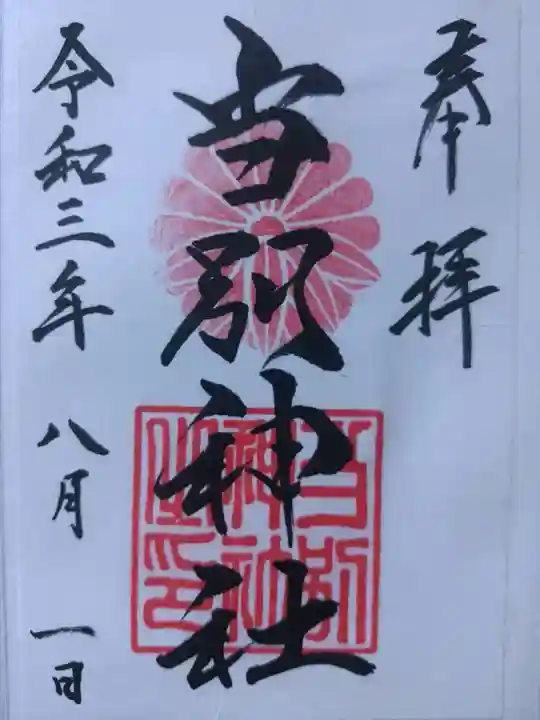 奉拝
当別神社
当別
神社
之印
令和三年 八月 一日